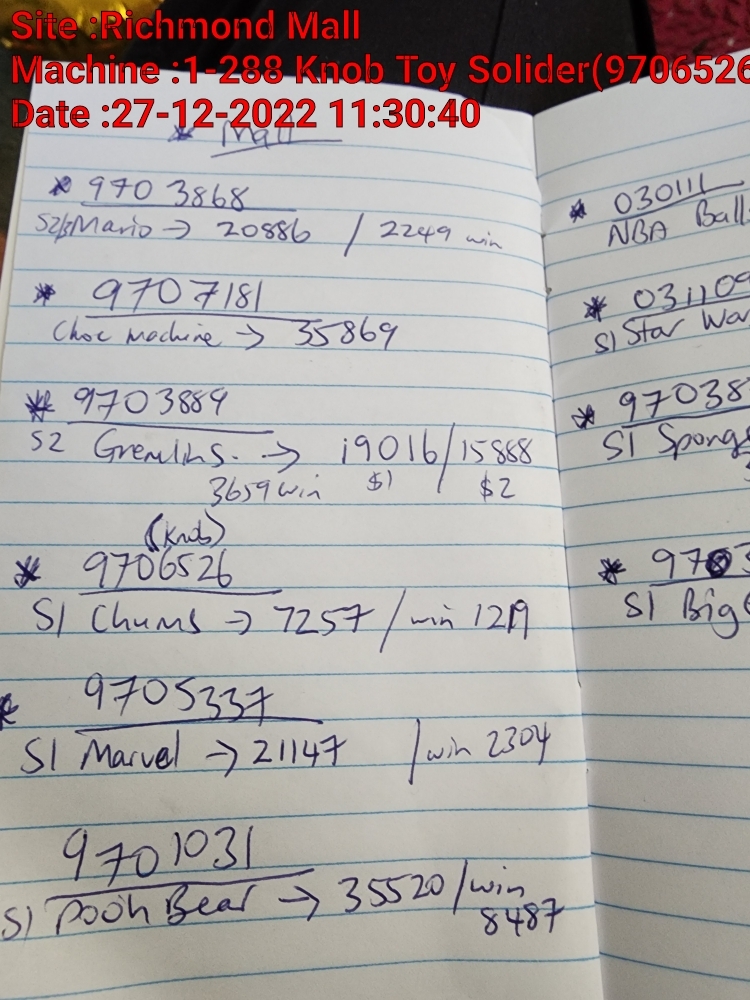 Site :Richmond Mall
Machine :1-288 Knob Toy Solider(9706526
Date :27-12-2022 11:30:40
* Mall
* 970 3868
Mario → 20886 / 2249 win
* 9707181
Choc machine → 35869
* 9703889
S2 Gremlins. → 19016/15888
3659 win $1 $2
(Knob)
* 9706526
S1 Chums → 7257 / win 1219
9705337
S1 Marvel → 21147 / win 2304
9701031
S1 Pooh Bear → 35520 / win
8487
* 030111
NBA Ball
* 03110
S1 Star War
* 97038
S1 Spong
* 9703
S1 Big